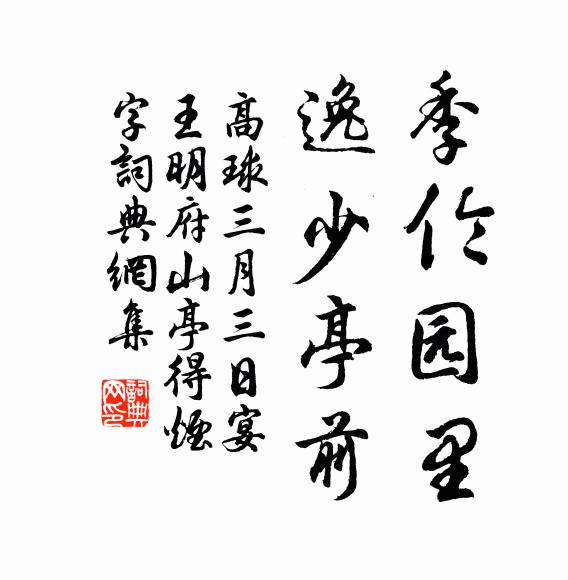 季伦园里
逸少亭前
高球三月三日宴
王明府山亭得煙
字詞典網集
詞典网印